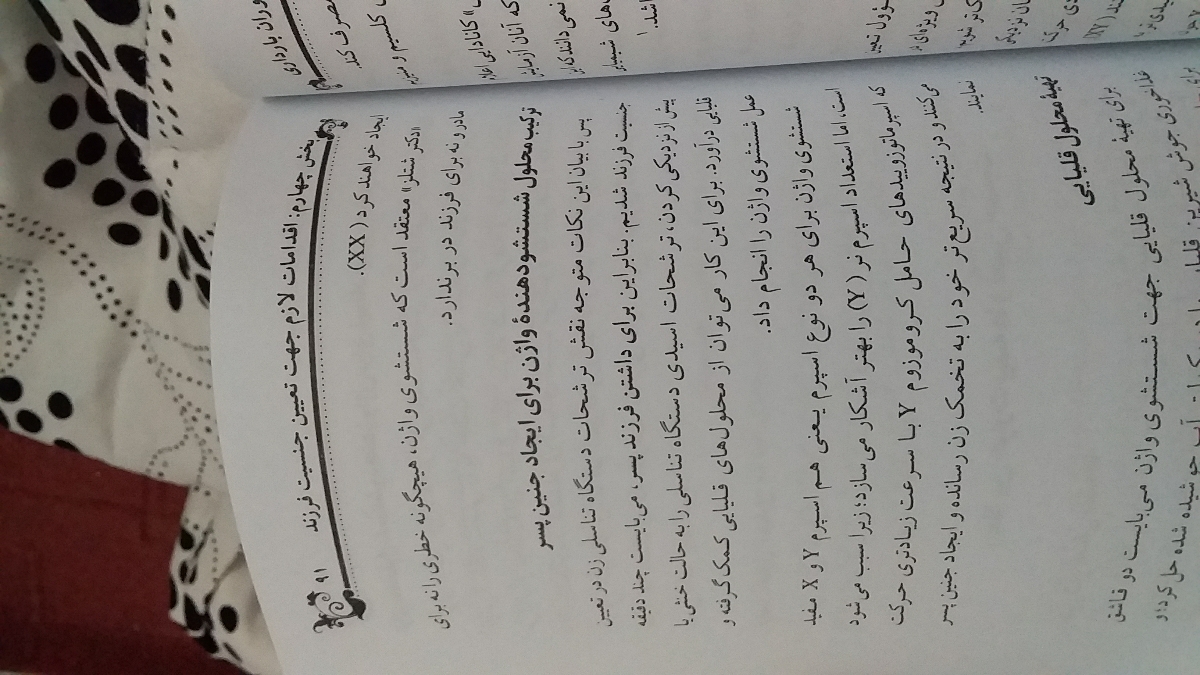 بخش چهارم: اقدامات لازم جهت تعیین جنسیت فرزند
۹۱
ایجاد خواهند کرد (XX).
«دکتر شتلز» معتقد است که شستشوی واژن، هیچگونه خطری را نه برای
مادر و نه برای فرزند در بر ندارد.
ترکیب محلول شستشو دهندۀ واژن برای ایجاد جنین پسر
پس با بیان این نکات متوجه نقش ترشحات دستگاه تناسلی زن در تعیین
جنسیت فرزند شدیم. بنابراین برای داشتن فرزند پسر، می‌بایست چند دقیقه
پیش از نزدیکی کردن، ترشحات اسیدی دستگاه تناسلی را به حالت خنثی یا
قلیایی درآورد. برای این کار می‌توان از محلول‌های قلیایی کمک گرفته و
عمل شستشوی واژن را انجام داد.
شستشوی واژن برای هر دو نوع اسپرم یعنی هم اسپرم Y و X مفید
است، اما استعداد اسپرم نر (Y) را بهتر آشکار می‌سازد؛ زیرا سبب می‌شود
که اسپرماتوزوییدهای حامل کروموزوم Y با سرعت زیادتری حرکت
می‌کنند و در نتیجه سریع‌تر خود را به تخمک زن رسانده و ایجاد جنین پسر
نمایند.
تهیۀ محلول قلیایی
برای تهیۀ محلول قلیایی جهت شستشوی واژن می‌بایست دو قاشق
غذاخوری جوش شیرین آب جوشیده شده حل کرد؛ و
وران بارداری
مصرف کند.
کلسیم و منیزیم
کانادایی اعلام
که آنان آزمایش
نمی‌دانند که این
های شیمیایی